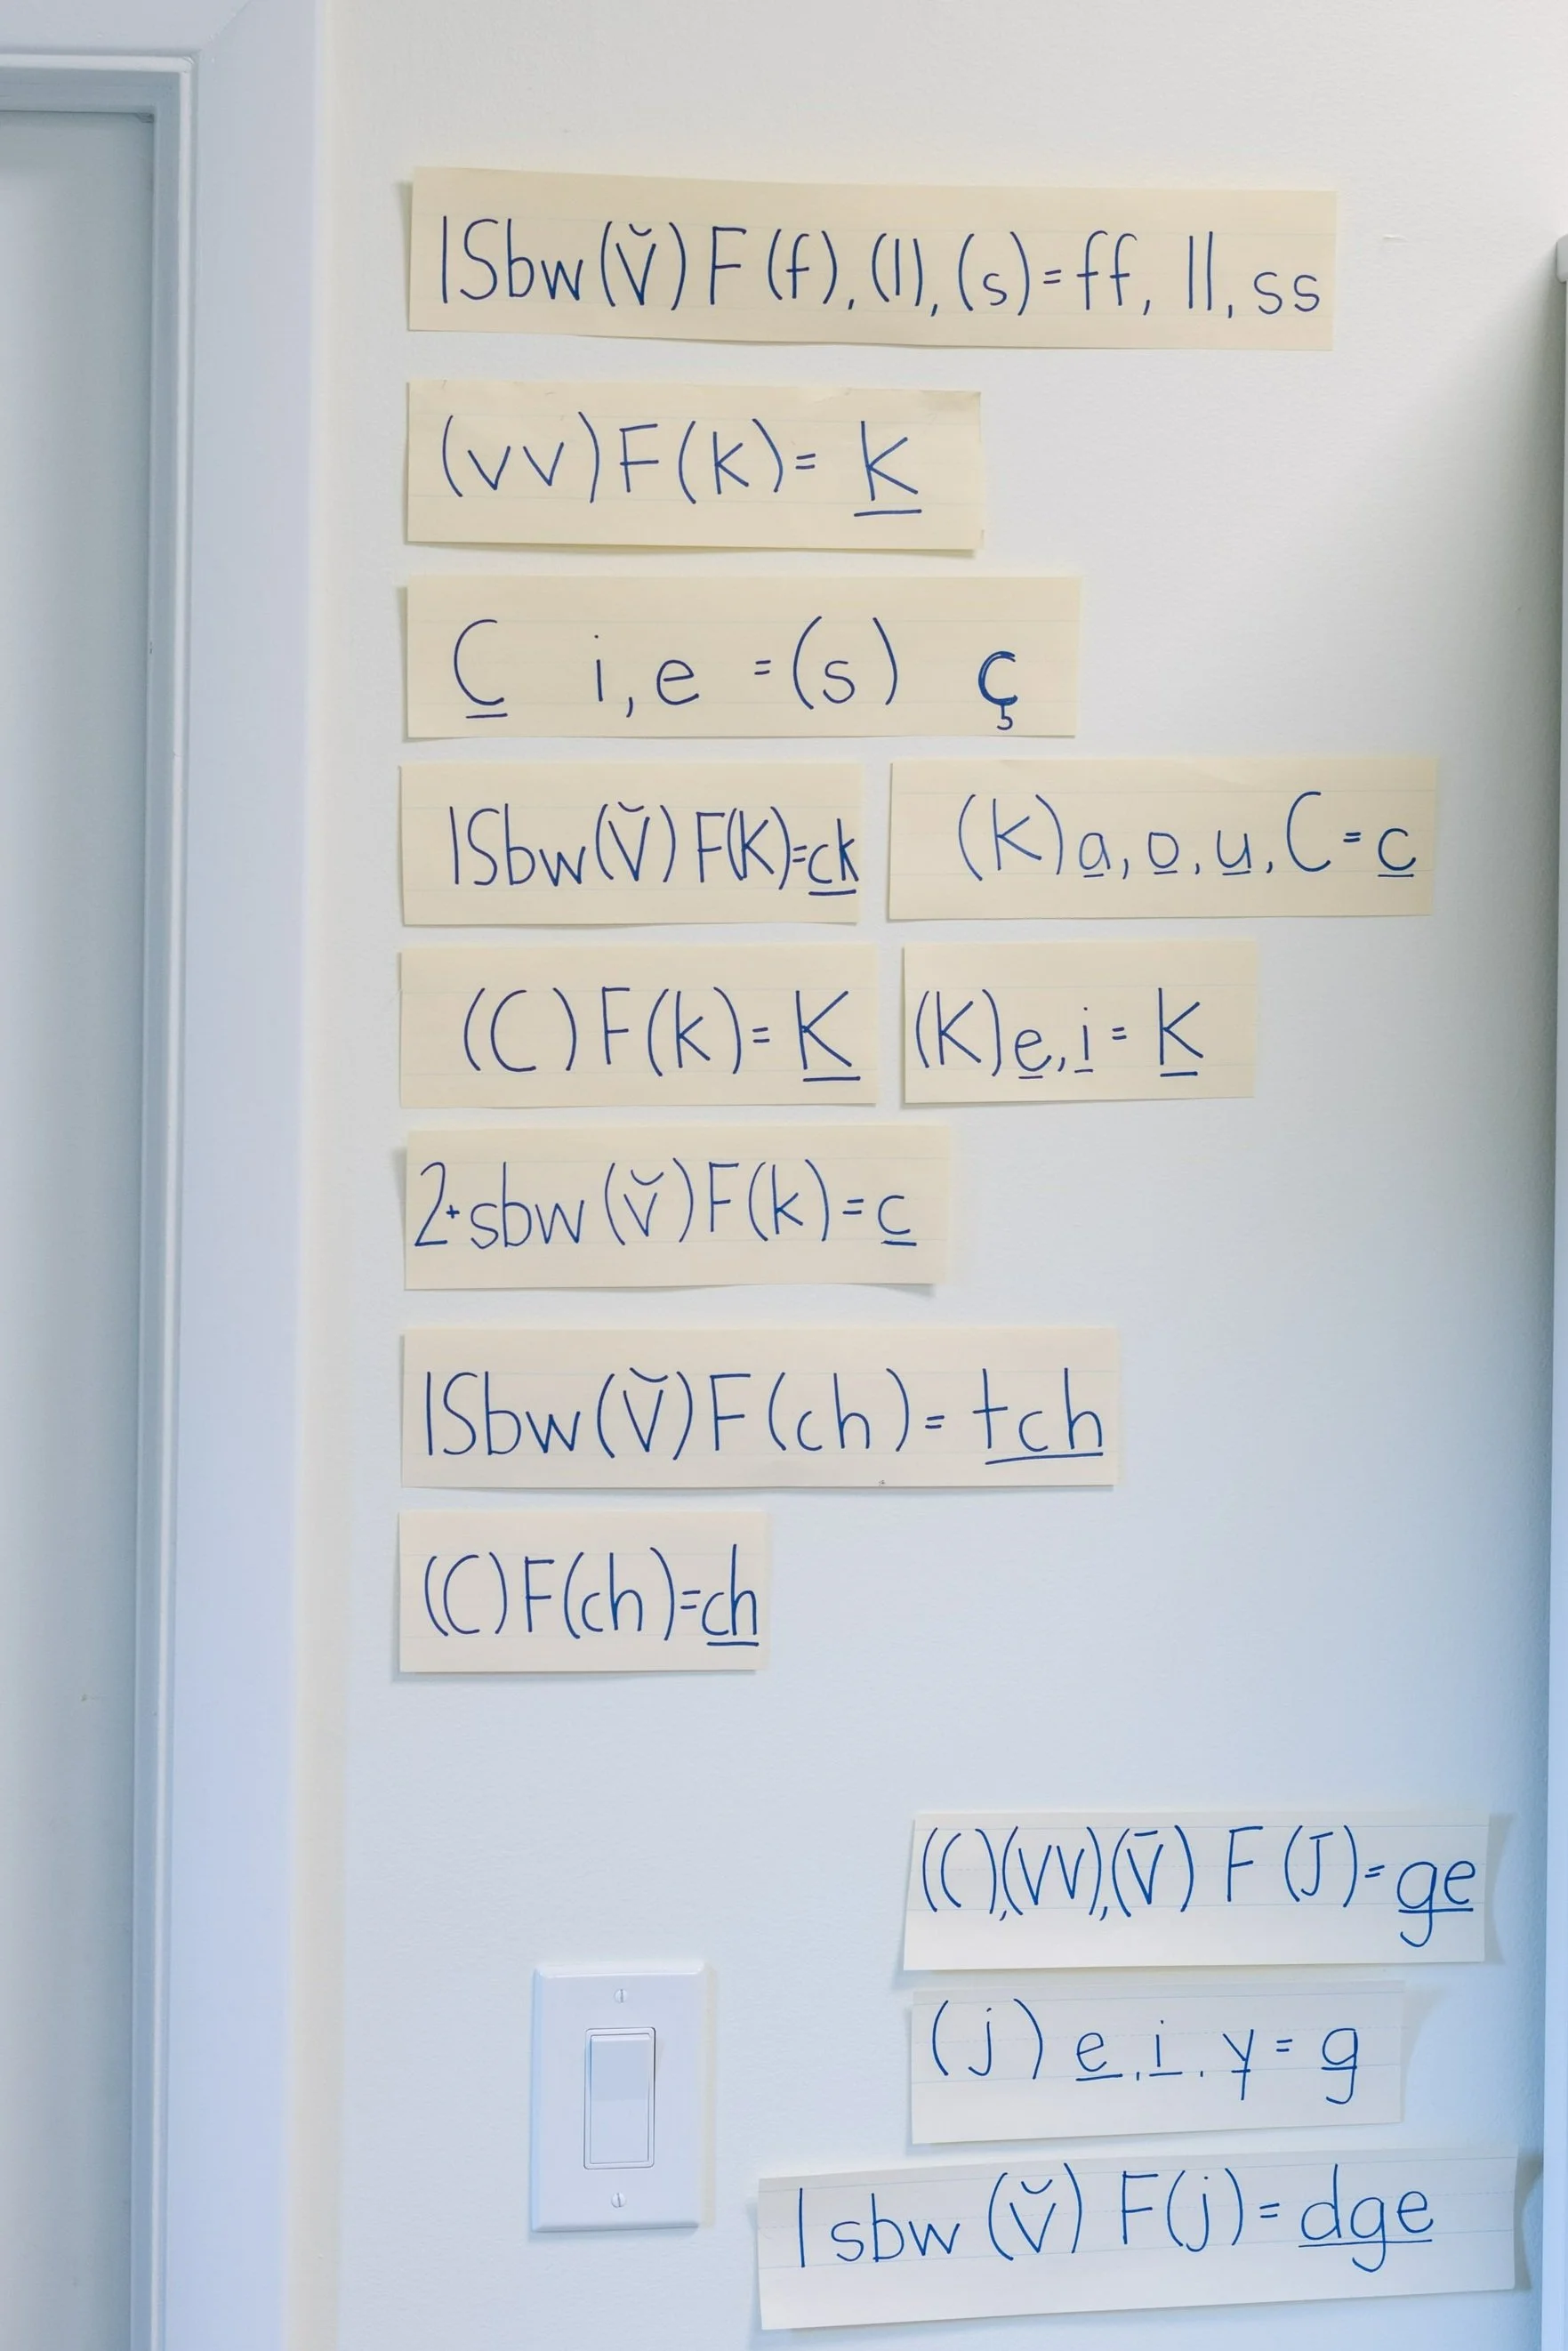 1Sbw(v̆)F(f),(l),(s)=ff, ll, ss
(vv)F(k)= k
C i,e =(s) ç
1Sbw(V̆)F(K)=ck
(K)a,o,u,C=c
(C)F(k)=K
(K)e,i=k
2+sbw(v̆)F(k)=c
1Sbw(V̆)F(ch)=tch
(C)F(ch)=ch
(C),(VV),(V̄) F (J)=ge
(j) e,i,y=g
1 sbw (V̆) F(j)=dge